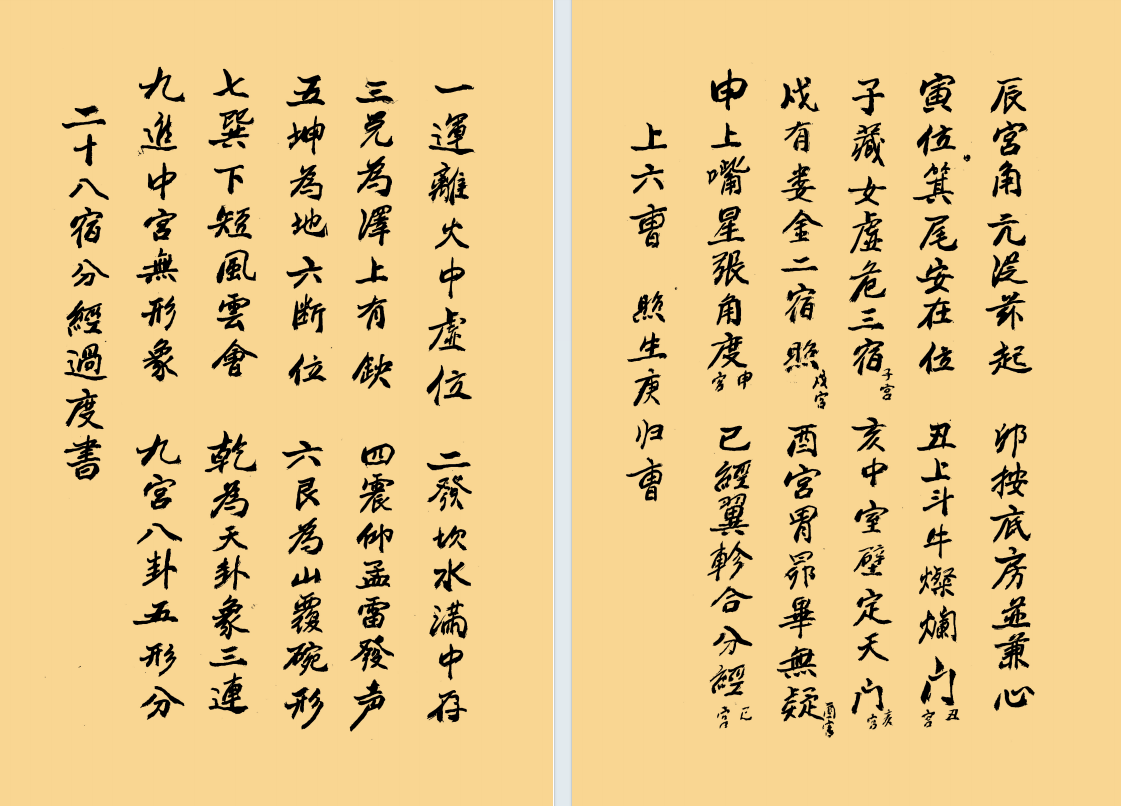 辰宮角亢從茲起 卯按底房並兼心
寅位箕尾安在位 丑上斗牛燦爛门 丑宮
子藏女虛危三宿 子宮 亥中室壁定天门 亥宮
戌有娄金二宿照 戌宮 酉宮胃昴畢無疑 酉宮
申上嘴星張角度 申宮 巳經翼軫合分經 巳宮
上六曹 照生庚归曹
一運離火中虛位 二發坎水滿中存
三兑為澤上有缺 四震仰孟雷發声
五坤為地六断位 六艮為山覆碗形
七巽下短風雲會 乾為天卦象三連
九進中宮無形象 九宮八卦五形分
二十八宿分經過度書